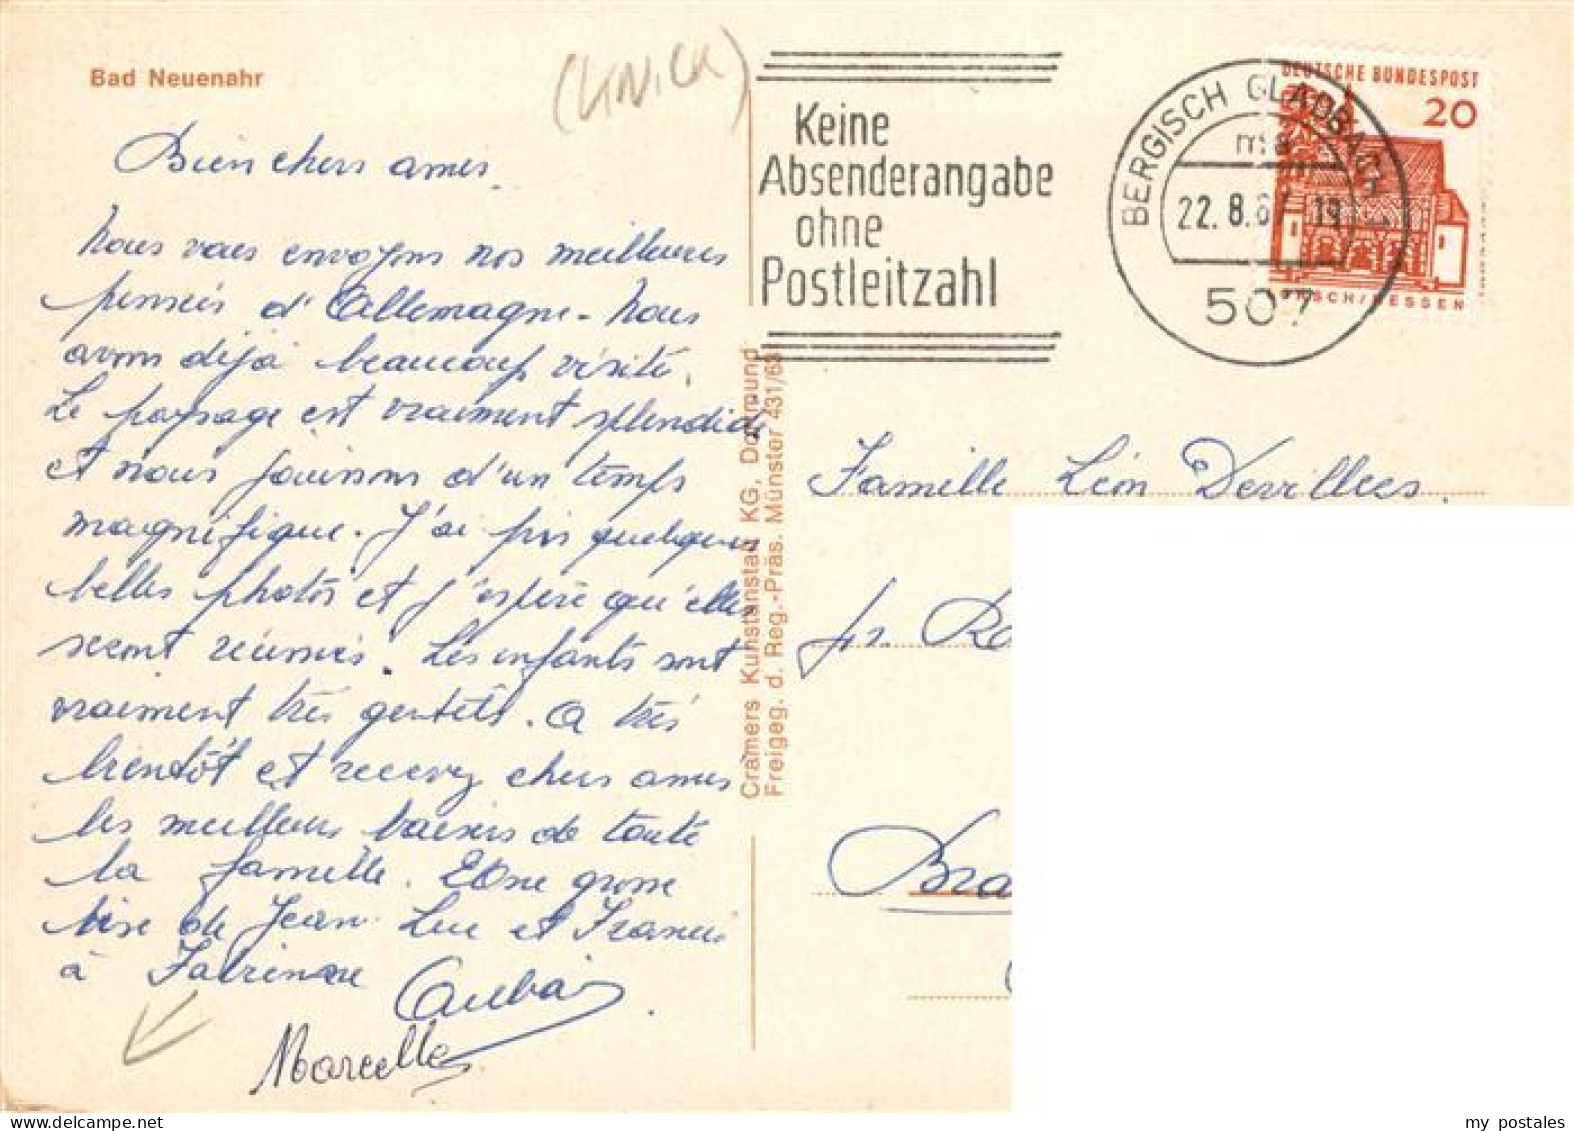 Bad Neuenahr
(KNICK)
Bien chers amis.
Nous vous envoyons nos meilleures
pensées d'Allemagne - Nous
avons déjà beaucoup visité.
Le paysage est vraiment splendide
et nous jouissons d'un temps
magnifique. J'ai pris quelques
belles photos et j'espère qu'elles
seront réussies. Les enfants sont
vraiment très gentils. A très
bientôt et recevez chers amis
les meilleurs baisers de toute
la famille. Une grosse
bise de Jean-Luc et Francis
à
Marcelle
Cramers Kunstanstalt KG, Dortmund
Freigeg. d. Reg.-Präs. Münster 431/63
Keine
Absenderangabe
ohne
Postleitzahl
BERGISCH GLADBACH 1
ma
22.8.67-19
507
DEUTSCHE BUNDESPOST
20
LORSCH/HESSEN
Famille Léon Devillers.
Bra
my postales